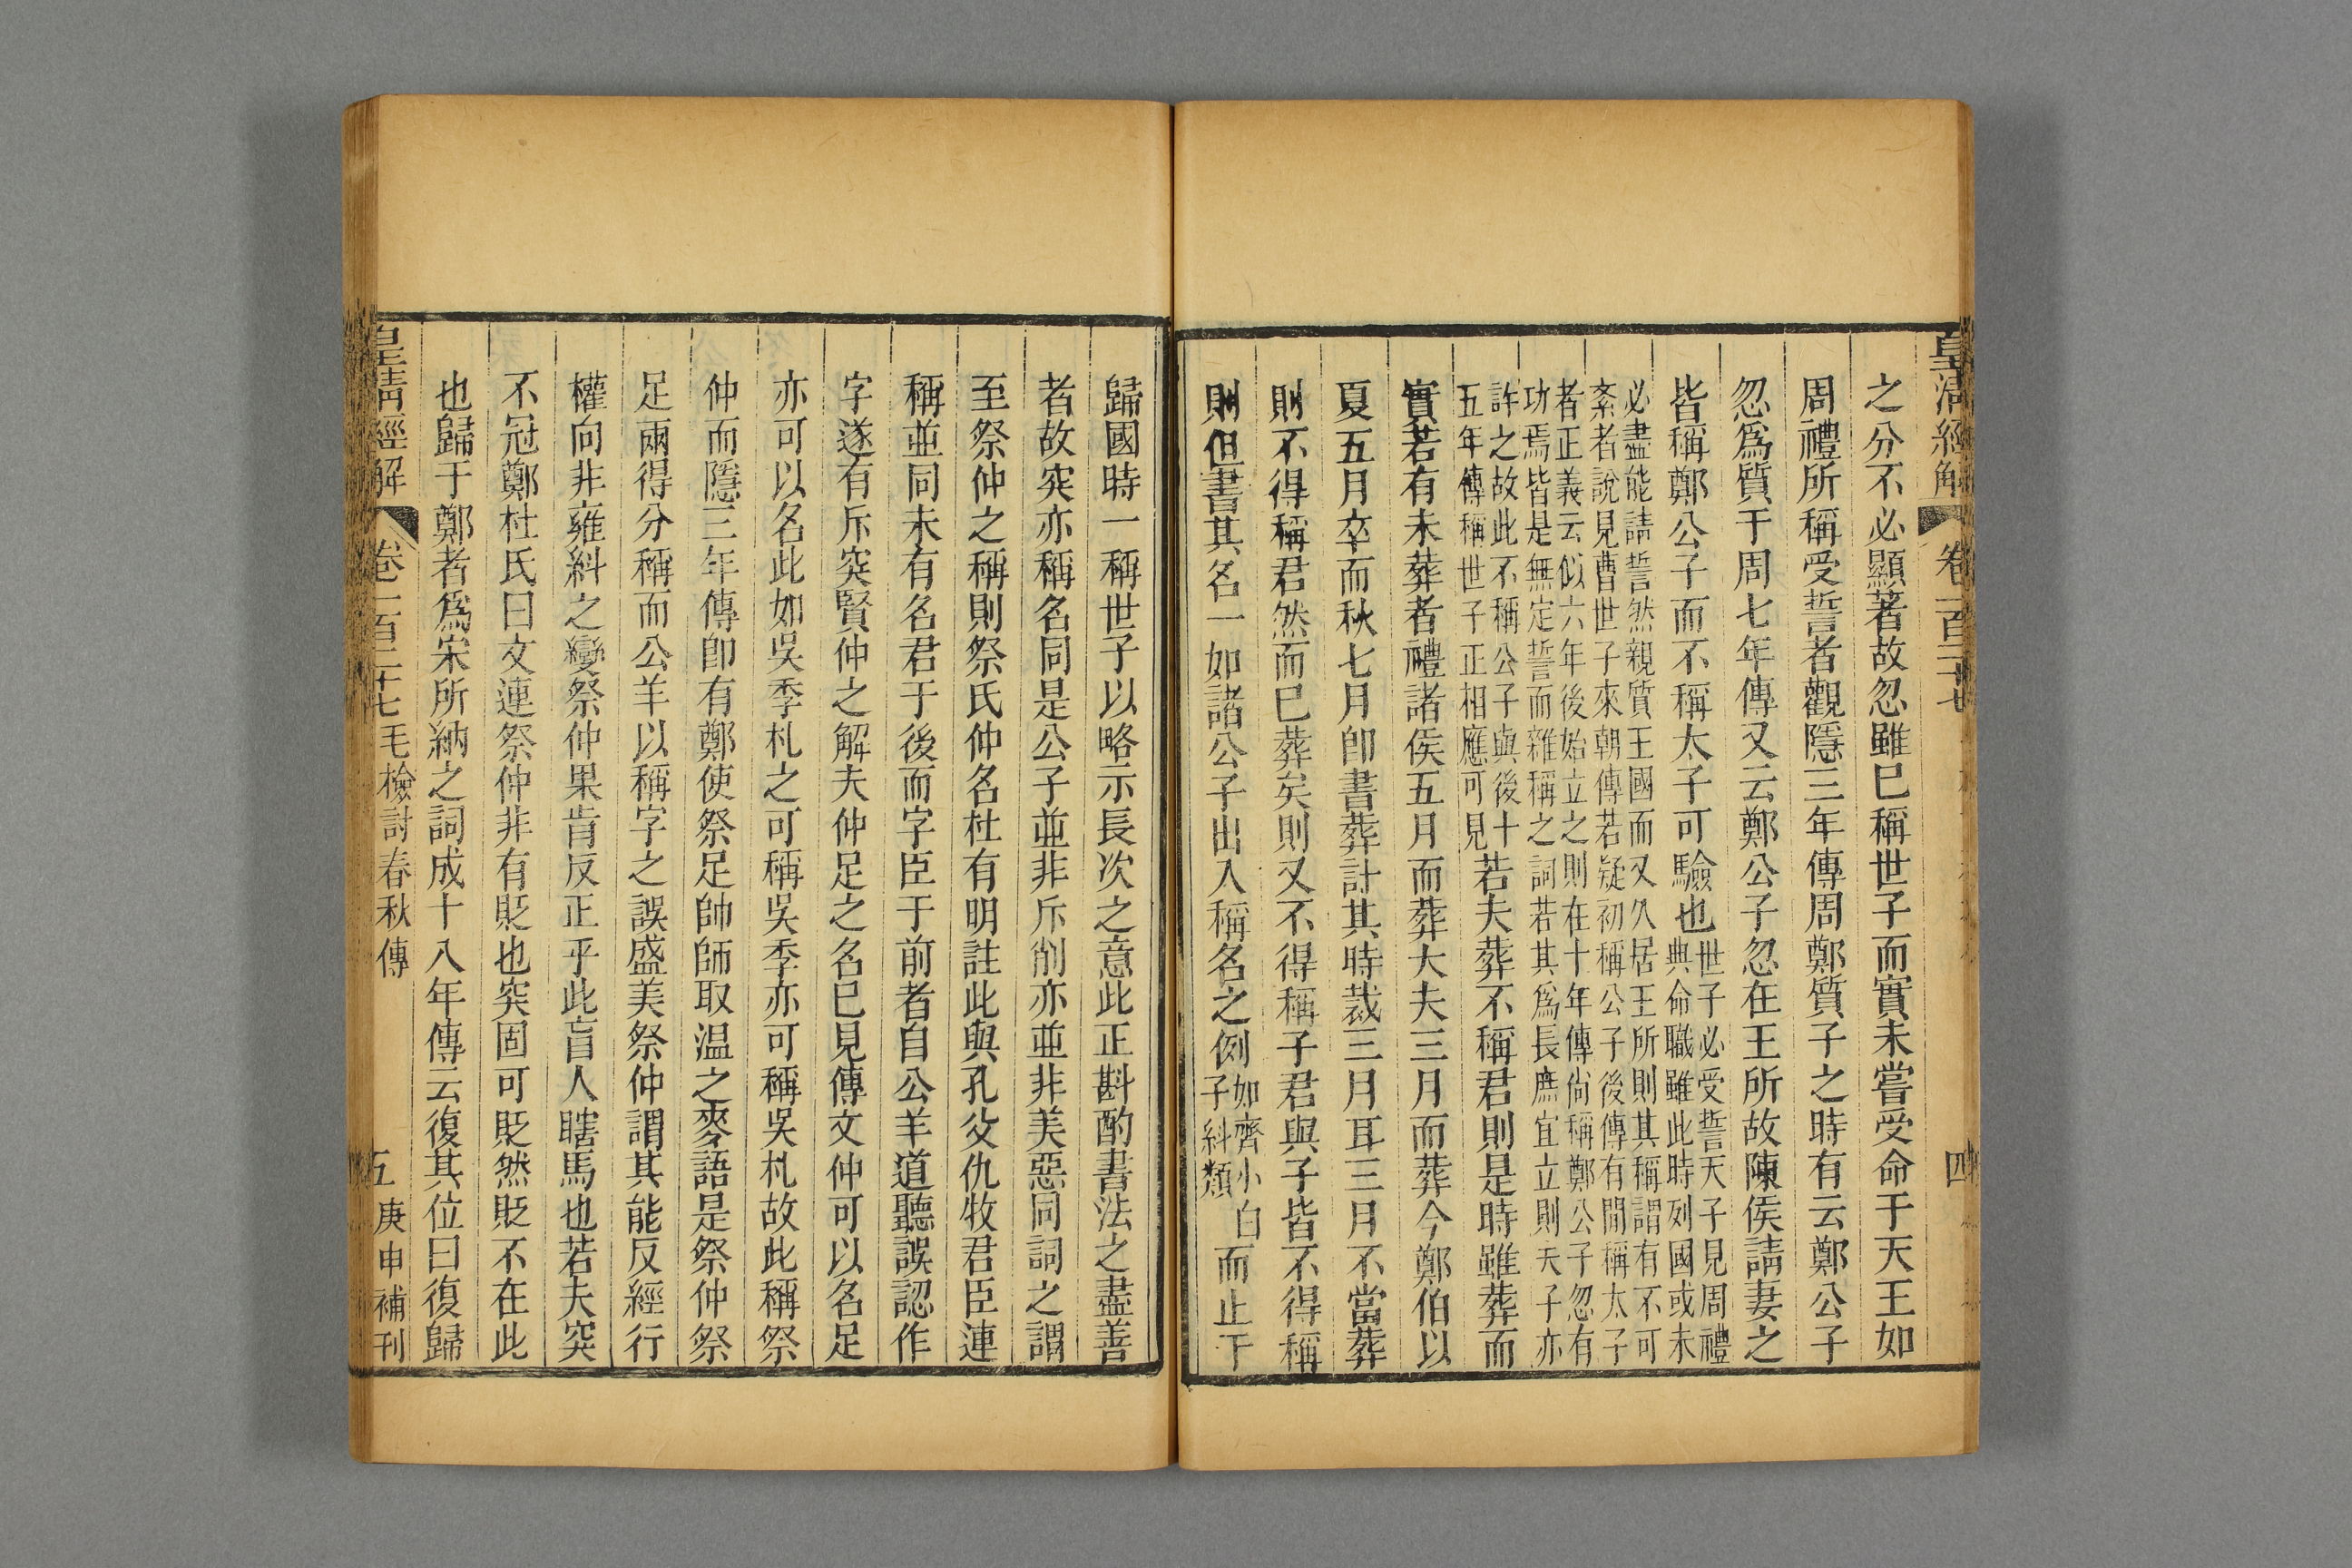 皇清經解 卷一百二十七 四
之分不必顯著故忽雖已稱世子而實未嘗受命于天王如
周禮所稱受誓者觀隱三年傳周鄭質子之時有云鄭公子
忽爲質于周七年傳又云鄭公子忽在王所故陳侯請妻之
皆稱鄭公子而不稱太子可驗也
世子必受誓天子見周禮
典命職雖此時列國或未
必盡能請誓然親質王國而又久居王所則其稱謂有不可
紊者說見曹世子來朝傳若疑初稱公子後傳有閒稱太子
者正義云似六年後始立之則在十年傳尙稱鄭公子忽有
功焉皆是無定誓而雜稱之詞若其爲長庶宜立則天子亦
許之故此不稱公子與後十
五年傳稱世子正相應可見
若夫葬不稱君則是時雖葬而
實若有未葬者禮諸侯五月而葬大夫三月而葬今鄭伯以
夏五月卒而秋七月卽書葬計其時裁三月耳三月不當葬
則不得稱君然而已葬矣則又不得稱子君與子皆不得稱
則但書其名一如諸公子出入稱名之例
如齊小白
子糾類
而止于
歸國時一稱世子以略示長次之意此正斟酌書法之盡善
者故突亦稱名同是公子並非斥削亦並非美惡同詞之謂
至祭仲之稱則祭氏仲名杜有明註此與孔父仇牧君臣連
稱並同未有名君于後而字臣于前者自公羊道聽誤認作
字遂有斥突賢仲之解夫仲足之名已見傳文仲可以名足
亦可以名此如吳季札之可稱吳季亦可稱吳札故此稱祭
仲而隱三年傳卽有鄭使祭足帥師取温之麥語是祭仲祭
足兩得分稱而公羊以稱字之誤盛美祭仲謂其能反經行
權向非雍糾之變祭仲果肯反正乎此盲人瞎馬也若夫突
不冠鄭杜氏曰文連祭仲非有貶也突固可貶然貶不在此
也歸于鄭者爲宋所納之詞成十八年傳云復其位曰復歸
皇清經解 卷一百二十七毛檢討春秋傳 五 庚申補刊